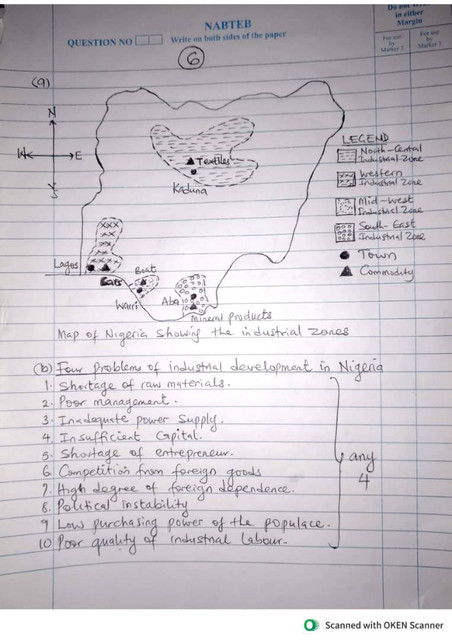 NABTEB
Do not Write
in either
Margin
QUESTION NO
Write on both sides of the paper
For use
by
Marker 2
For use
by
Marker 1
6
(a)
N
W
E
S
LEGEND
North-Central
Industrial Zone
Western
Industrial Zone
Mid-West
Industrial Zone
South-East
Industrial Zone
Town
Commodity
Textiles
Kaduna
Lagos
Cars
Boat
Warri
Aba
Mineral products
Map of Nigeria Showing the industrial zones
(b) Four Problems of industrial development in Nigeria
1. Shortage of raw materials.
2. Poor management.
3. Inadequate power Supply.
4. Insufficient Capital.
5. Shortage of entrepreneur.
6. Competition from foreign goods
7. High degree of foreign dependence.
8. Political instability
9 Low purchasing power of the populace.
10 Poor quality of industrial Labour.
any
4
Scanned with OKEN Scanner